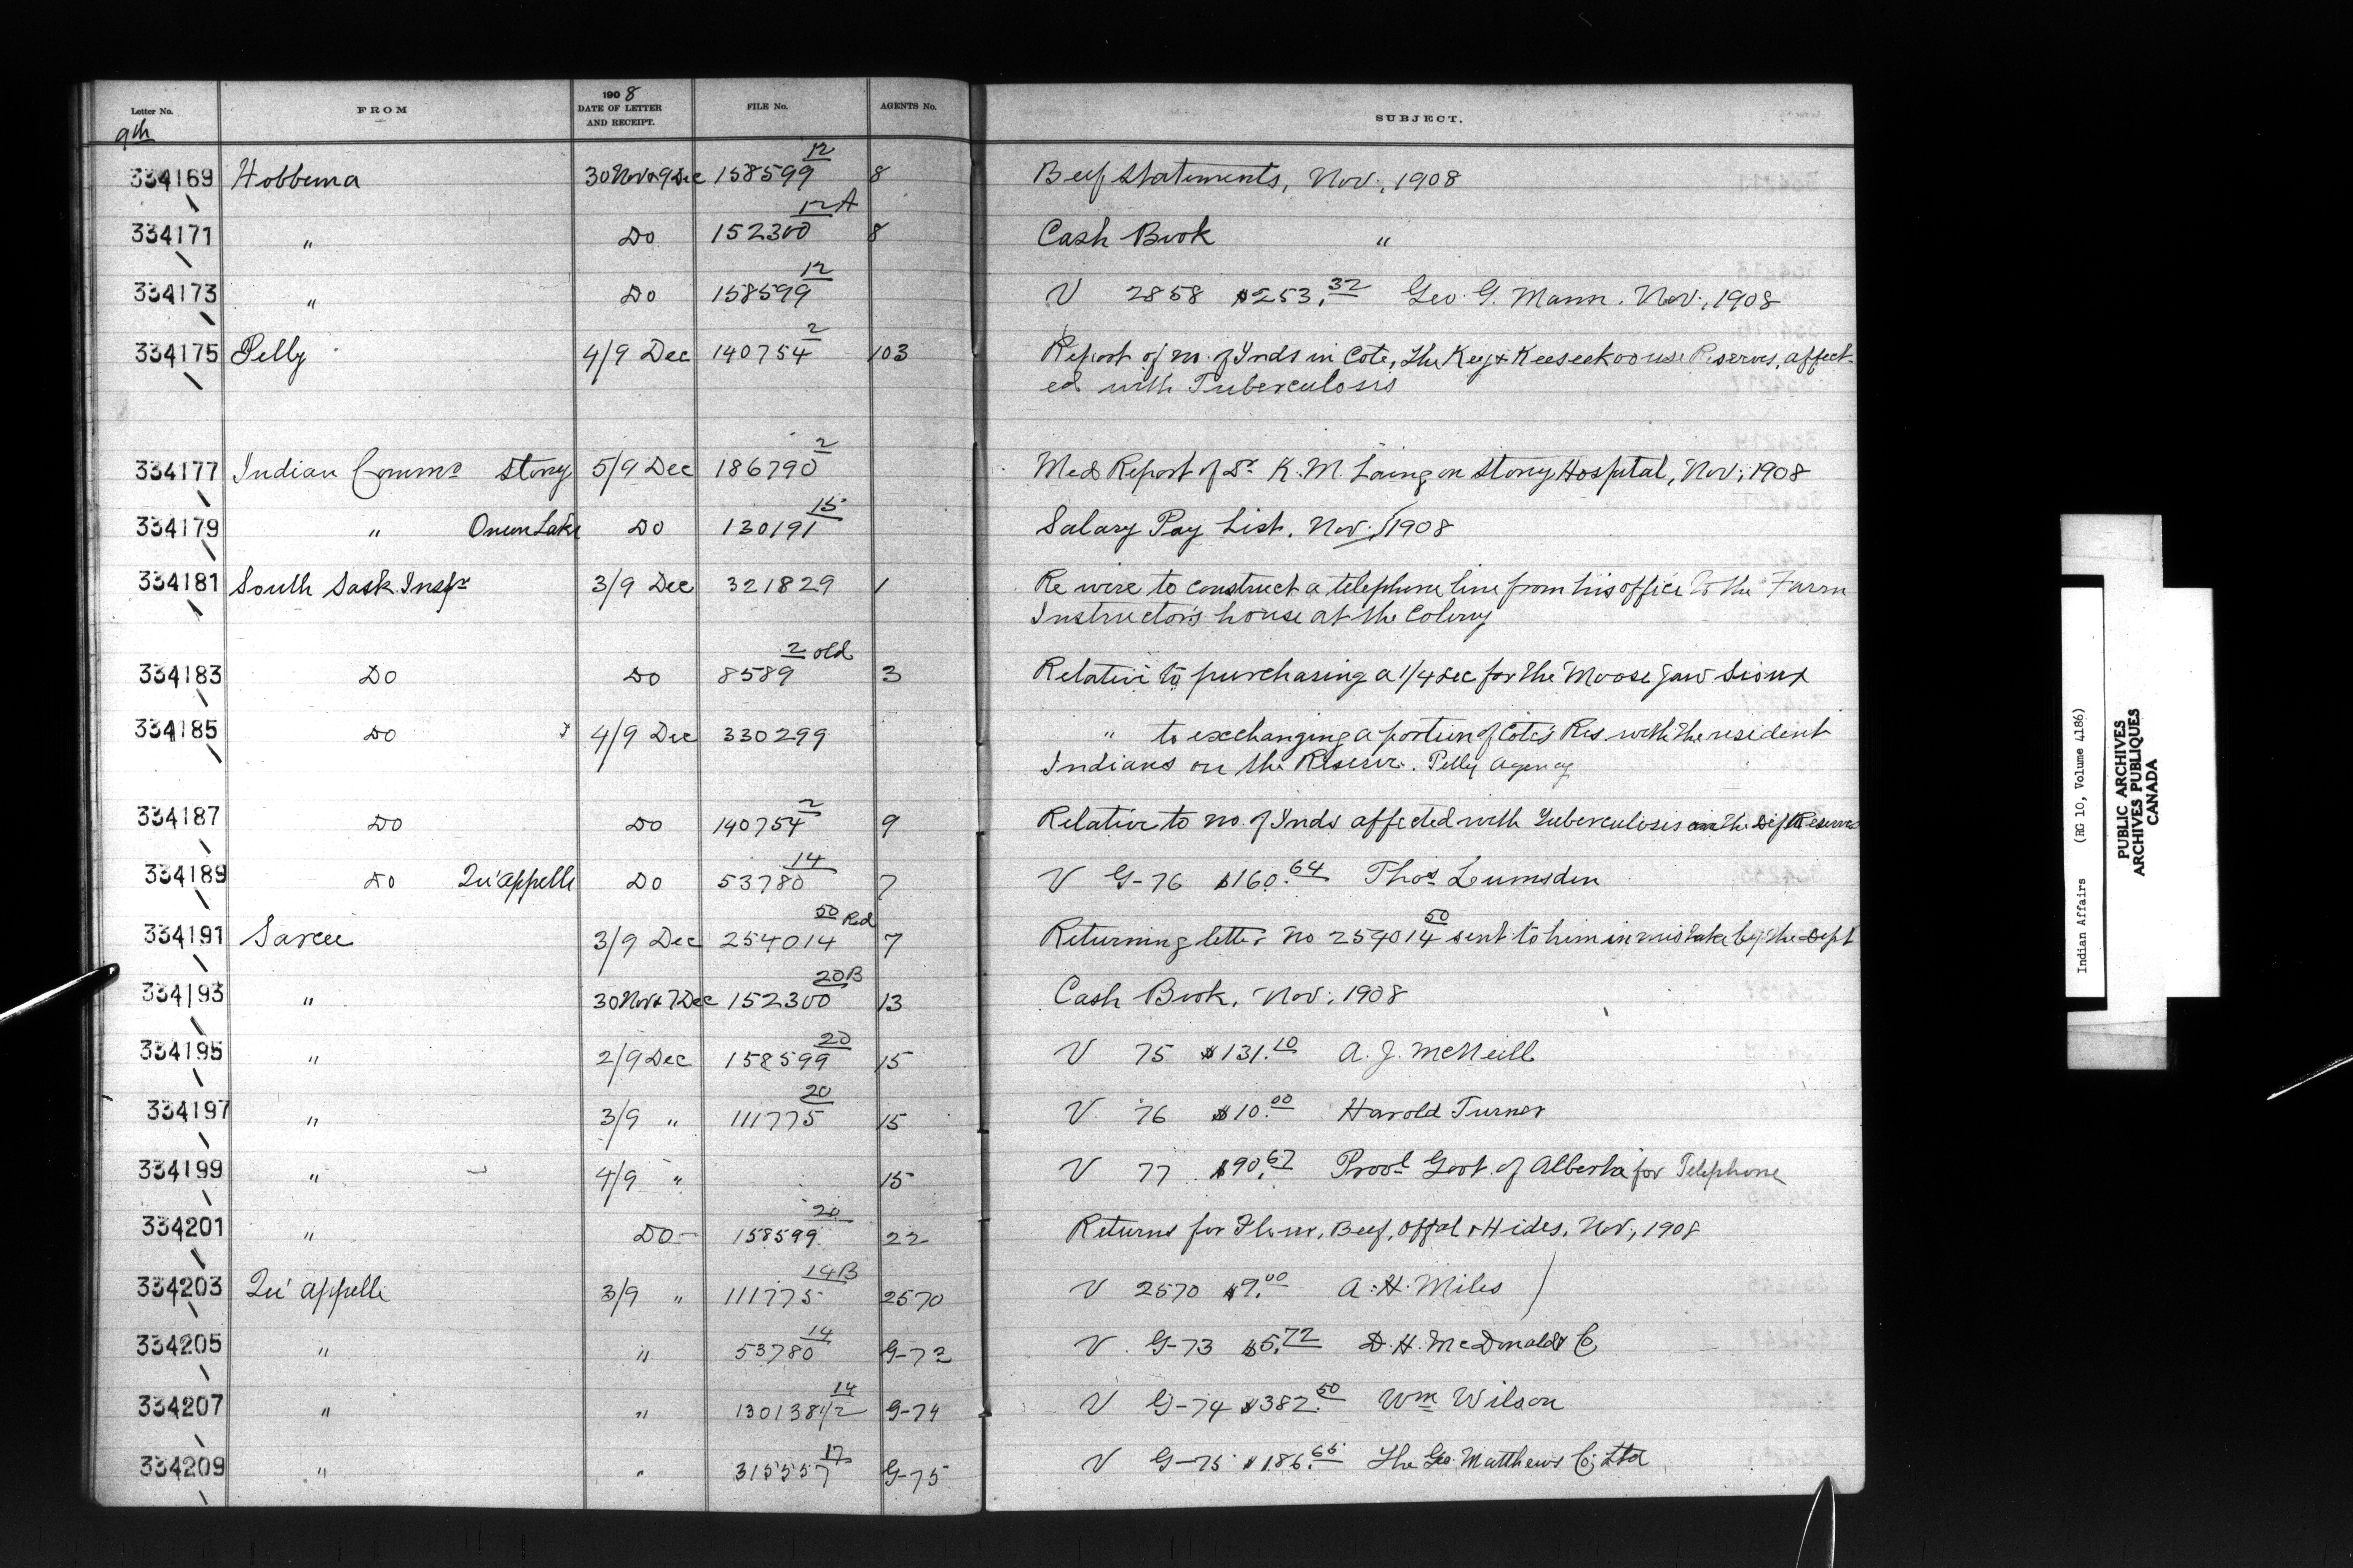 Letter No. FROM 1908 DATE OF LETTER AND RECEIPT. FILE No. AGENTS No. SUBJECT.
9th
334169 Hobbema 30 Nov & 9 Dec 158599 12 8 Beef Statements, Nov., 1908
334171 " Do 152300 12A 8 Cash Book "
334173 " Do 158599 12 V 2858 $253.32 Geo. G. Mann. Nov., 1908
334175 Pelly 4/9 Dec 140754 2 103 Report of no. of Inds in Cote, The Key & Keeseekoouse Reserves, affect-
ed with Tuberculosis
334177 Indian Commr Stony 5/9 Dec 186790 2 Med Report of Dr K. M. Laing on Stony Hospital, Nov., 1908
334179 " Onion Lake Do 130191 15 Salary Pay List. Nov., 1908
334181 South Sask. Inspr 3/9 Dec 321829 1 Re wire to construct a telephone line from his office to the Farm
Instructor's house at the Colony
334183 Do Do 8589 2 old 3 Relative to purchasing a 1/4 Sec for the Moose Jaw Sioux
334185 Do 4/9 Dec 330299 " to exchanging a portion of Cote's Res. with the resident
Indians on the Reserve. Pelly Agency
334187 Do Do 140754 2 9 Relative to no. of Inds affected with Tuberculosis on the Reserves
334189 Do Qu'appelle Do 53780 14 7 V G-76 $160.64 Thos Lumsden
334191 Sarcee 3/9 Dec 254014 50 Red 7 Returning letter no 254014 50 sent to him in mistake by the Dept
334193 " 30 Nov & 7 Dec 152300 20B 13 Cash Book, Nov., 1908
334195 " 2/9 Dec 158599 20 15 V 75 $131.10 A. J. McNeill
334197 " 3/9 " 111775 20 15 V 76 $10.00 Harold Turner
334199 " 4/9 " 15 V 77 $90.67 Provl Govt. of Alberta for Telephone
334201 " Do 158599 20 22 Returns for Flour, Beef, Offal & Hides, Nov., 1908
334203 Qu'appelle 3/9 " 111775 14B 2570 V 2570 $7.00 A. H. Miles
334205 " " 53780 14 G-73 V G-73 $5.72 D. H. McDonald & Co
334207 " " 130138 1/2 14 G-74 V G-74 $382.50 Wm Wilson
334209 " " 315557 17 G-75 V G-75 $186.65 The Geo. Matthews Co, Ltd
Indian Affairs (RG 10, Volume 4186)
PUBLIC ARCHIVES
ARCHIVES PUBLIQUES
CANADA